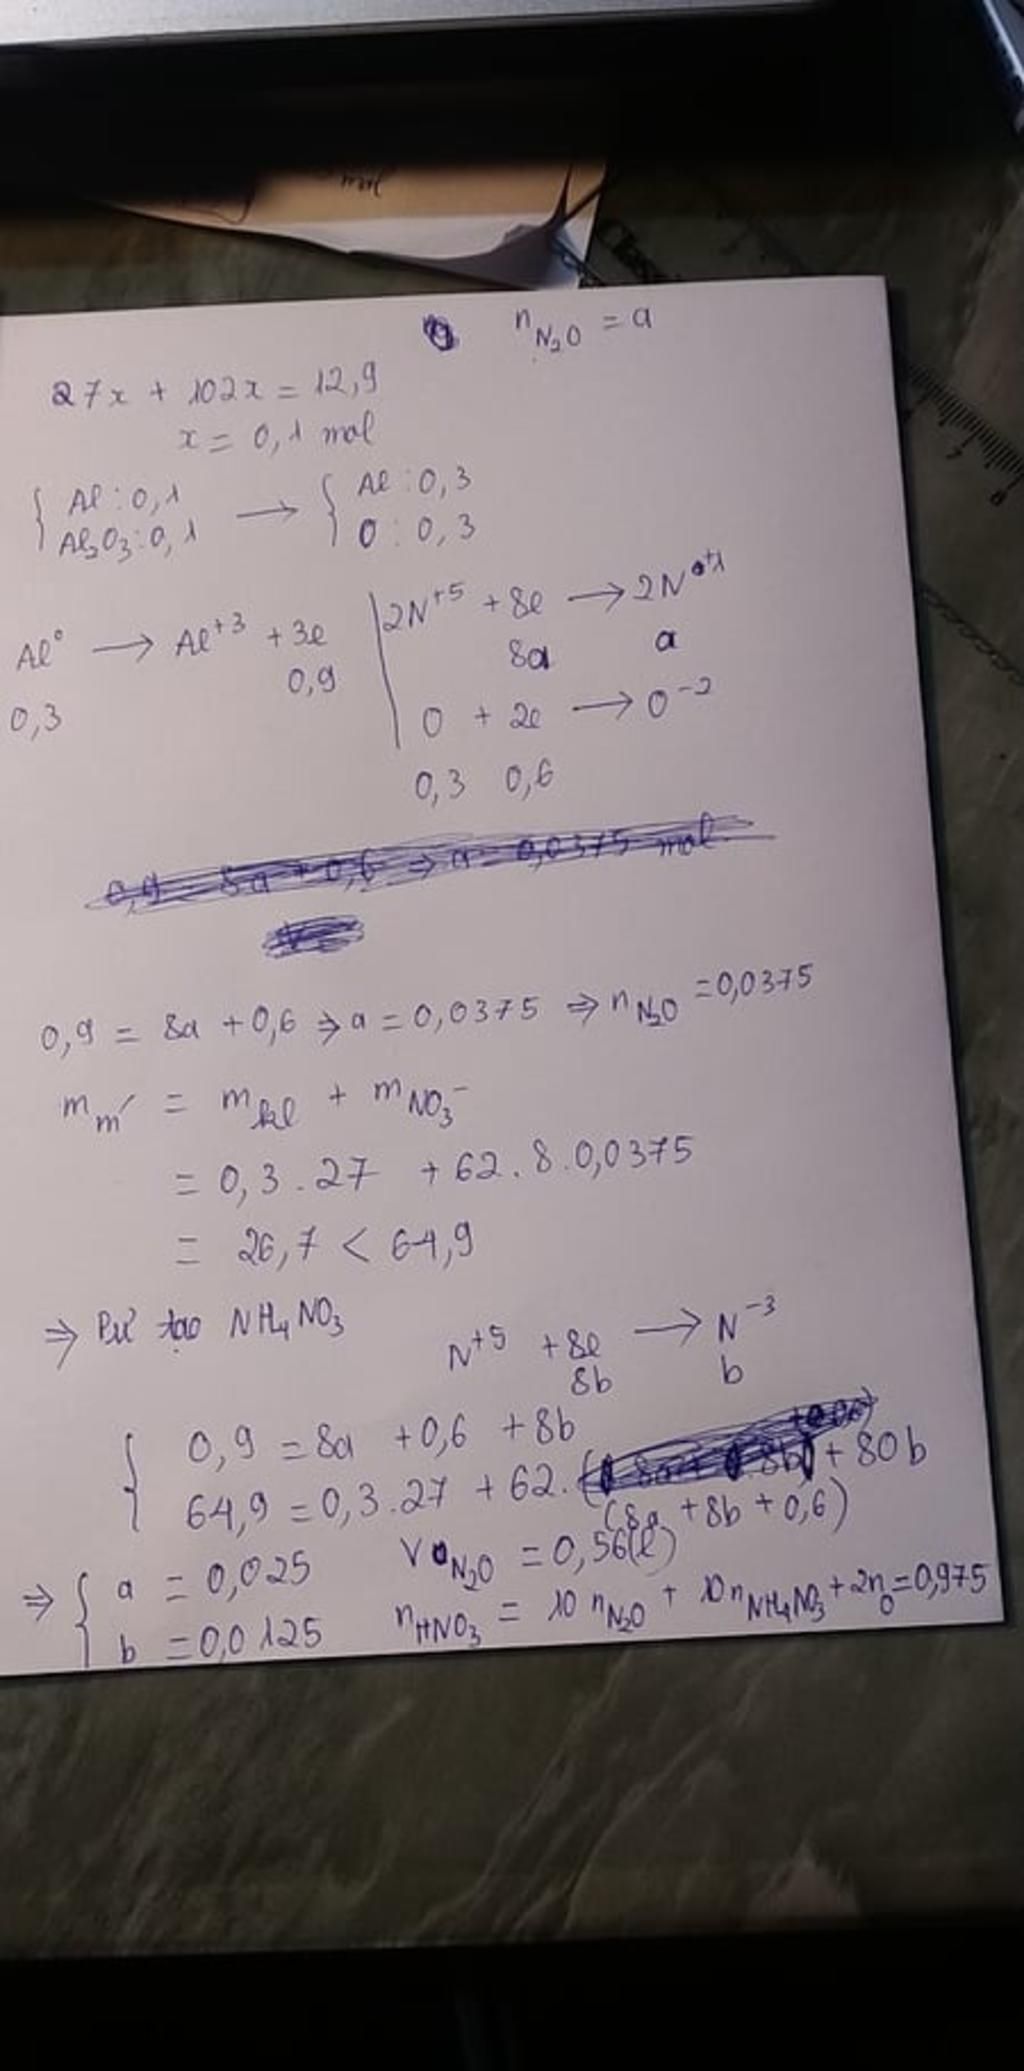 mol
n_{N_2O} = a
27x + 102x = 12,9
x = 0,1 mol
{ Al : 0,1 → { Al : 0,3
Al_2O_3 : 0,1 O : 0,3
Al^0 → Al^{+3} + 3e | 2N^{+5} + 8e → 2N^{+1}
0,3 0,9 8a a
O + 2e → O^{-2}
0,3 0,6
0,9 = 8a + 0,6 ⇒ a = 0,0375 mol
0,9 = 8a + 0,6 ⇒ a = 0,0375 ⇒ n_{N_2O} = 0,0375
m_{m'} = m_{kl} + m_{NO_3^-}
= 0,3 . 27 + 62 . 8 . 0,0375
= 26,7 < 64,9
⇒ Pư tạo NH_4NO_3
N^{+5} + 8e → N^{-3}
8b b
{ 0,9 = 8a + 0,6 + 8b
64,9 = 0,3 . 27 + 62 . (8a + 8b + 0,6) + 80b
⇒ { a = 0,025 V_{N_2O} = 0,56(l)
b = 0,0125 n_{HNO_3} = 10 n_{N_2O} + 10 n_{NH_4NO_3} + 2n_O = 0,975